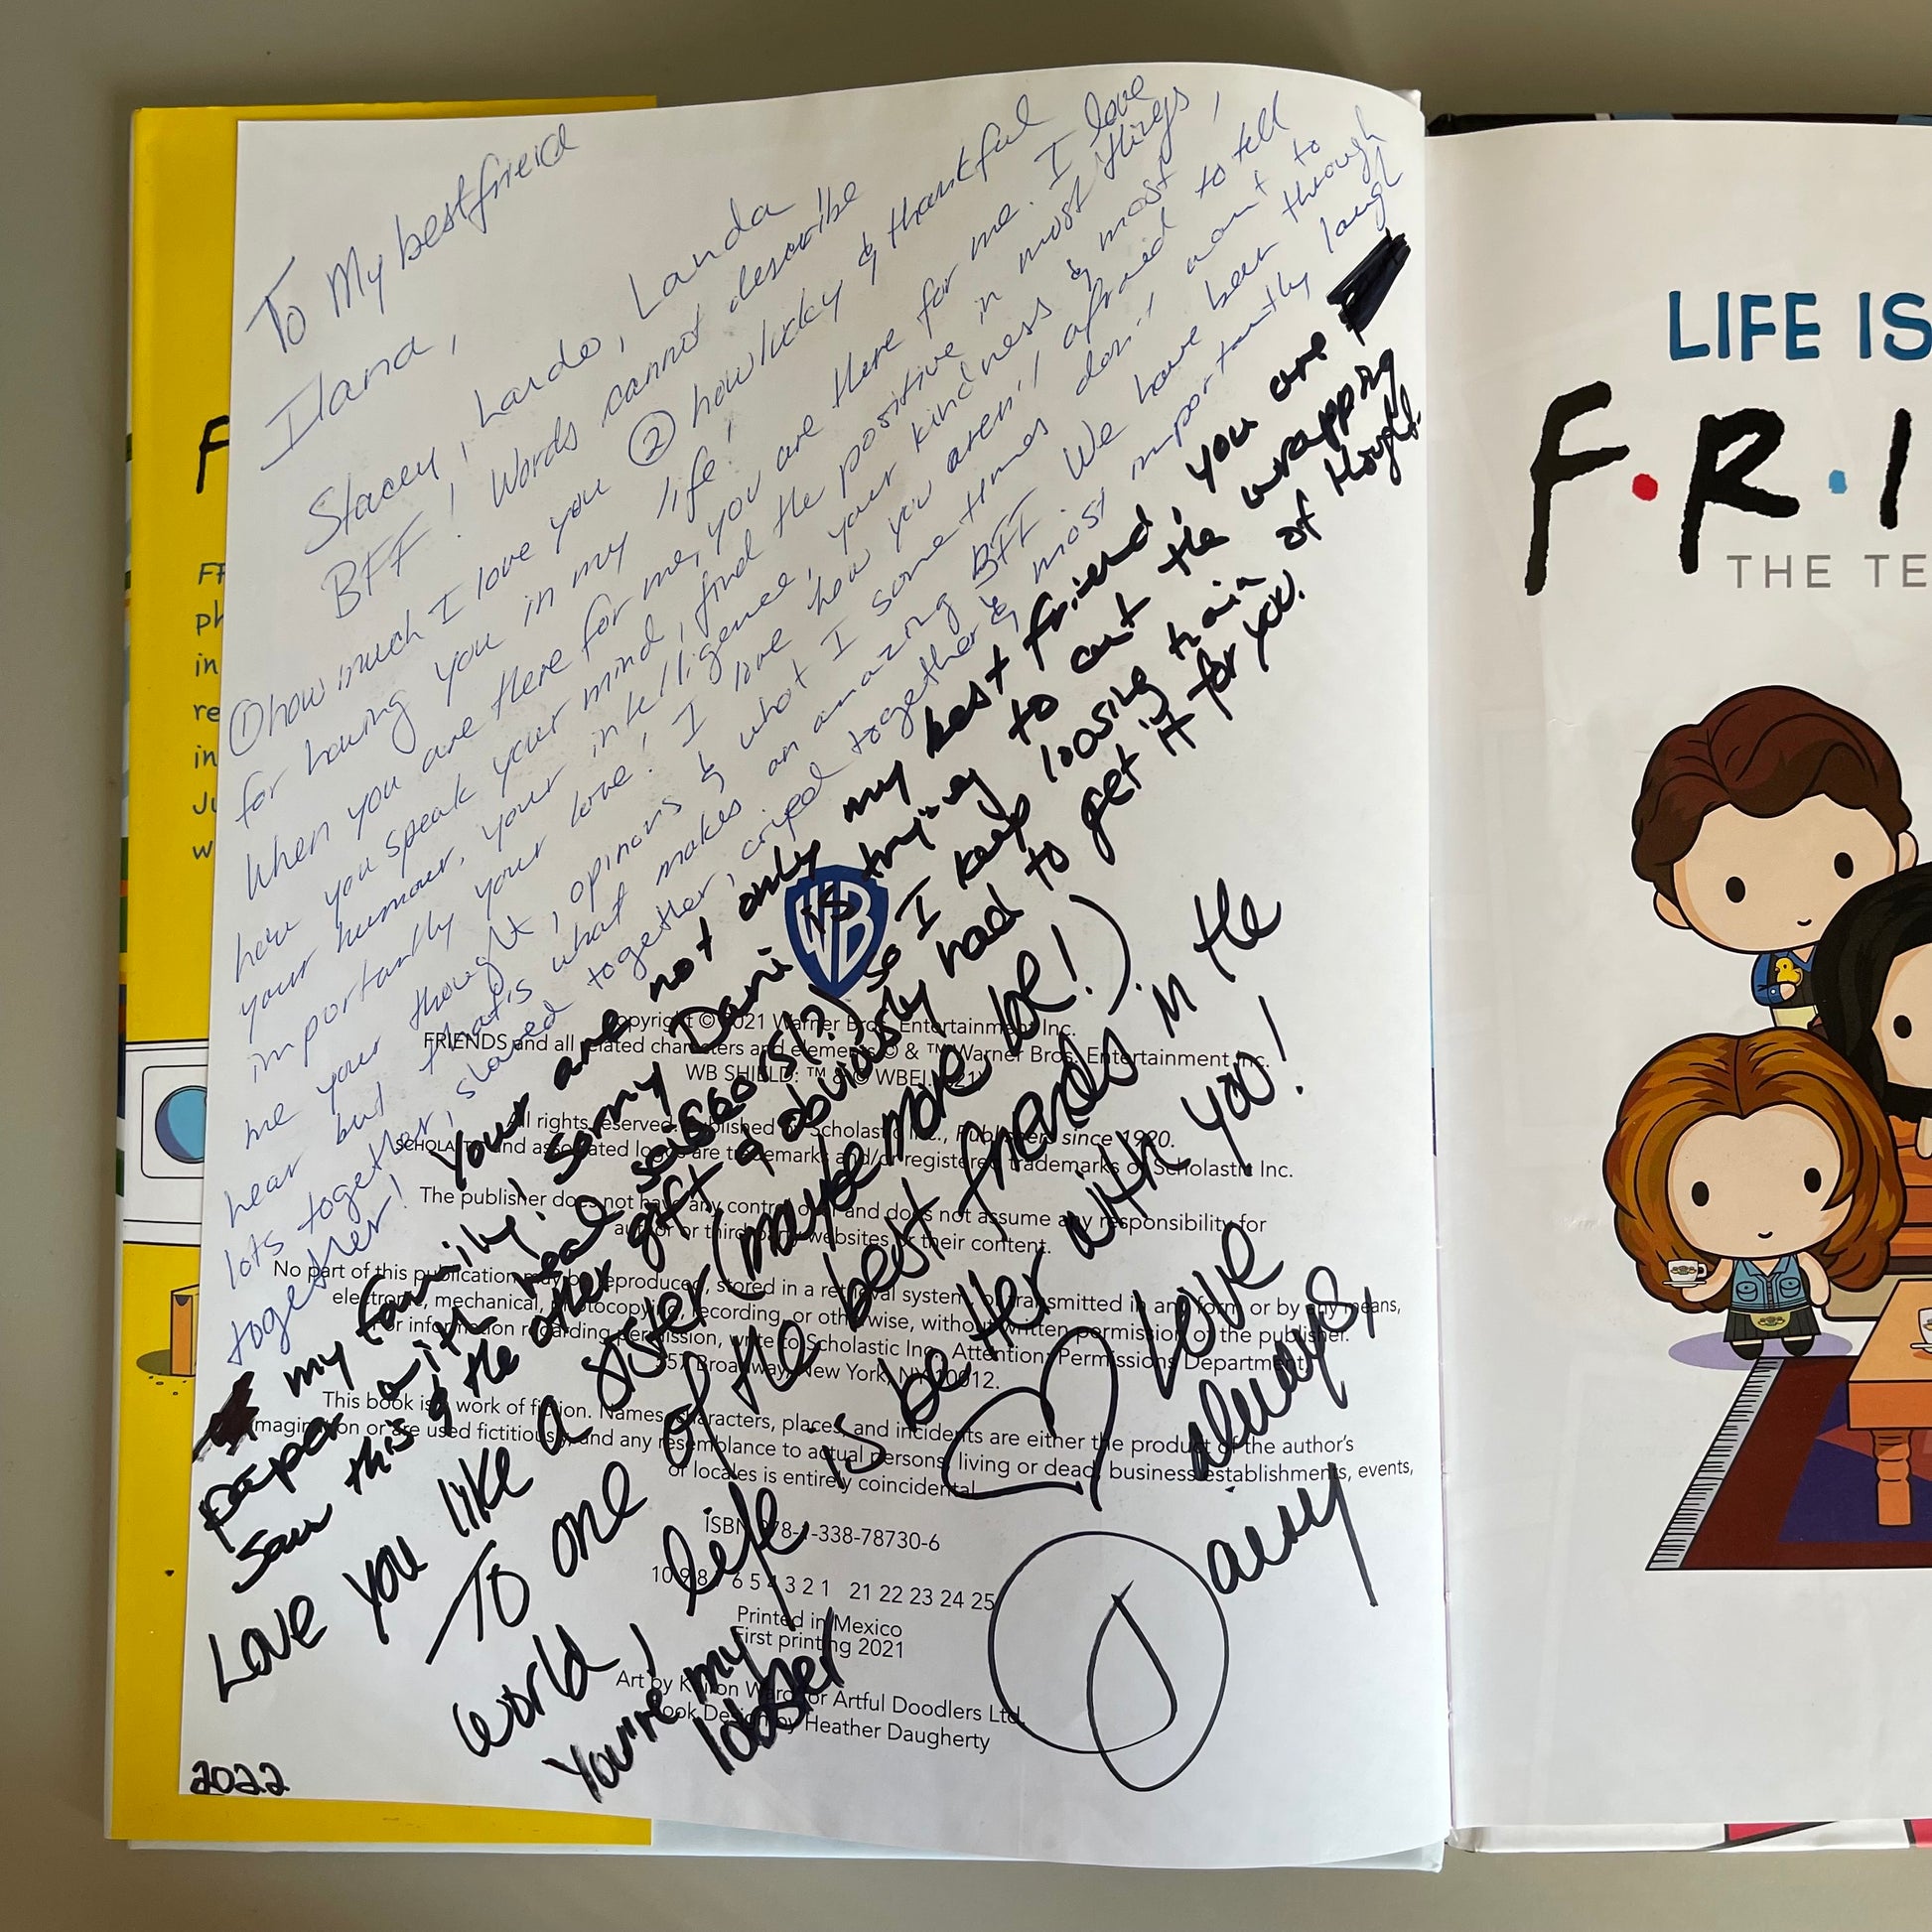 To My bestfrieid
Ilana,
Stacey, Lardo, Landa
BFF! Words cannot describe
① how much I love you ② how lucky & thankful
for having you in my life!
When you are there for me, you are there for me. I love
how you speak your mind, find the positive in most things,
your humour, your intelligence, your kindness & most
importantly your love! I love how you aren't afraid to tell
me your thought, opinions & what I sometimes don't want to
hear but that's what makes an amazing BFF. We have been through
lots together, shared together, cried together & most importantly laugh
together!
Your are not only my best friend, you are
my family! Sorry Dani is trying to cut the wrapping
paper with real scissors!?) so I keep loosing train of thought.
Saw this & the other gift & obviously had to get it for you.
Love you like a sister (maybe more be!).
To one of the best friends in the
world, life is better with you!
You're my
lobster
Love
always,
Jaimy
2022
WB
Copyright © 2021 Warner Bros. Entertainment Inc.
FRIENDS and all related characters and elements © & ™ Warner Bros. Entertainment Inc.
WB SHIELD: ™ & © WBEI. (s21)
All rights reserved. Published by Scholastic Inc., Publishers since 1920.
SCHOLASTIC and associated logos are trademarks and/or registered trademarks of Scholastic Inc.
The publisher does not have any control over and does not assume any responsibility for
author or third-party websites or their content.
No part of this publication may be reproduced, stored in a retrieval system, or transmitted in any form or by any means,
electronic, mechanical, photocopying, recording, or otherwise, without written permission of the publisher.
For information regarding permission, write to Scholastic Inc., Attention: Permissions Department,
557 Broadway, New York, NY 10012.
This book is a work of fiction. Names, characters, places, and incidents are either the product of the author's
imagination or are used fictitiously, and any resemblance to actual persons, living or dead, business establishments, events,
or locales is entirely coincidental.
ISBN 978-1-338-78730-6
10 9 8 7 6 5 4 3 2 1 21 22 23 24 25
Printed in Mexico
First printing 2021
Art by Keiron Ward for Artful Doodlers Ltd.
Book Design by Heather Daugherty
LIFE IS
F·R·I
THE TE